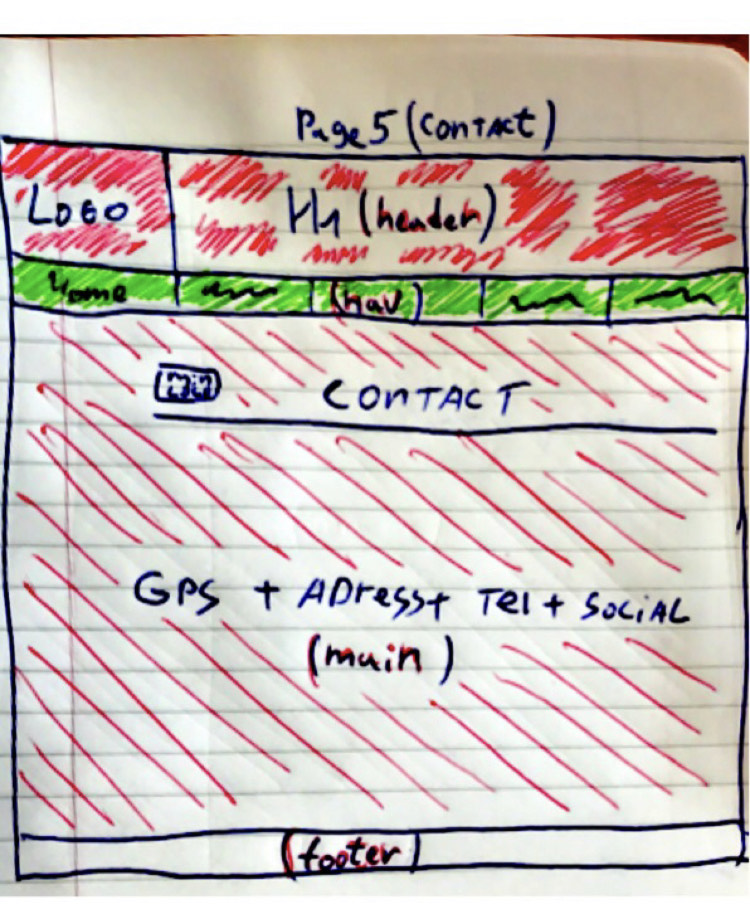 Page 5 (Contact)
Logo
H1 (header)
Home
(nav)
CONTACT
GPS + ADress + Tel + SOCiAL
(main)
(footer)